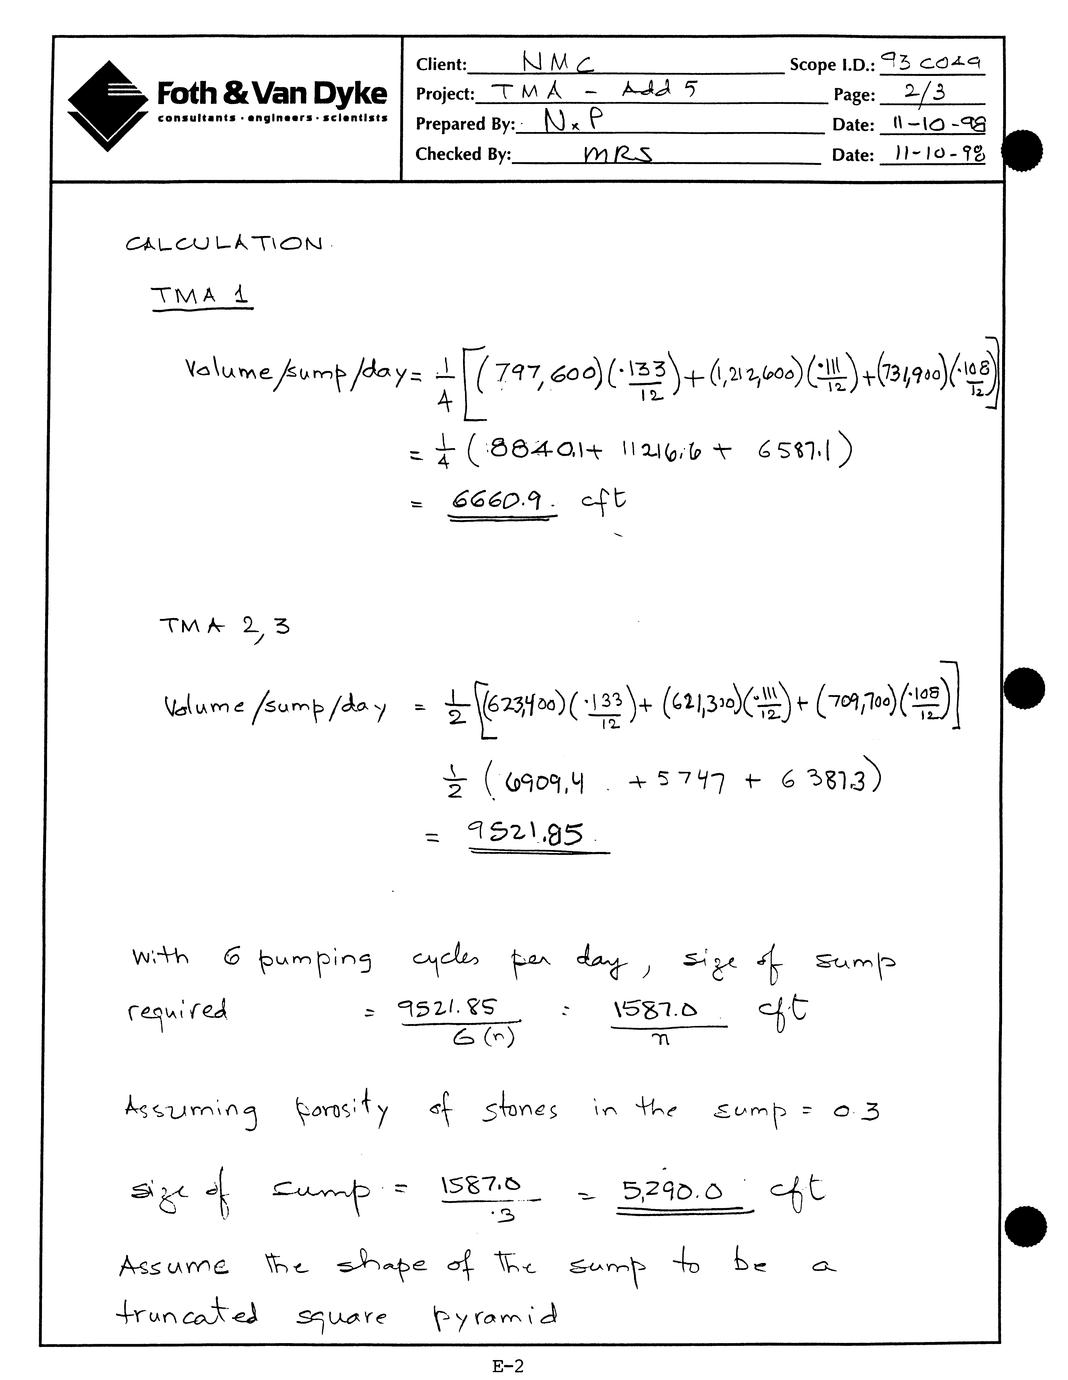 Foth & Van Dyke
consultants · engineers · scientists
Client: NMC Scope I.D.: 93C049
Project: TMA - Add 5 Page: 2/3
Prepared By: NxP Date: 11-10-98
Checked By: MRS Date: 11-10-98
CALCULATION.
TMA 1
Volume/sump/day = 1/4 [(797,600)(.133/12) + (1,212,600)(.111/12) + (731,900)(.108/12)]
= 1/4 (8840.1 + 11216.6 + 6587.1)
= 6660.9. cft
TMA 2,3
Volume/sump/day = 1/2 [(623,400)(.133/12) + (621,300)(.111/12) + (709,700)(.108/12)]
1/2 (6909.4 + 5747 + 6387.3)
= 9521.85.
With 6 pumping cycles per day, size of sump
required = 9521.85/6(n) = 1587.0/n cft
Assuming porosity of stones in the sump = 0.3
size of sump = 1587.0/.3 = 5,290.0 cft
Assume the shape of the sump to be a
truncated square pyramid
E-2